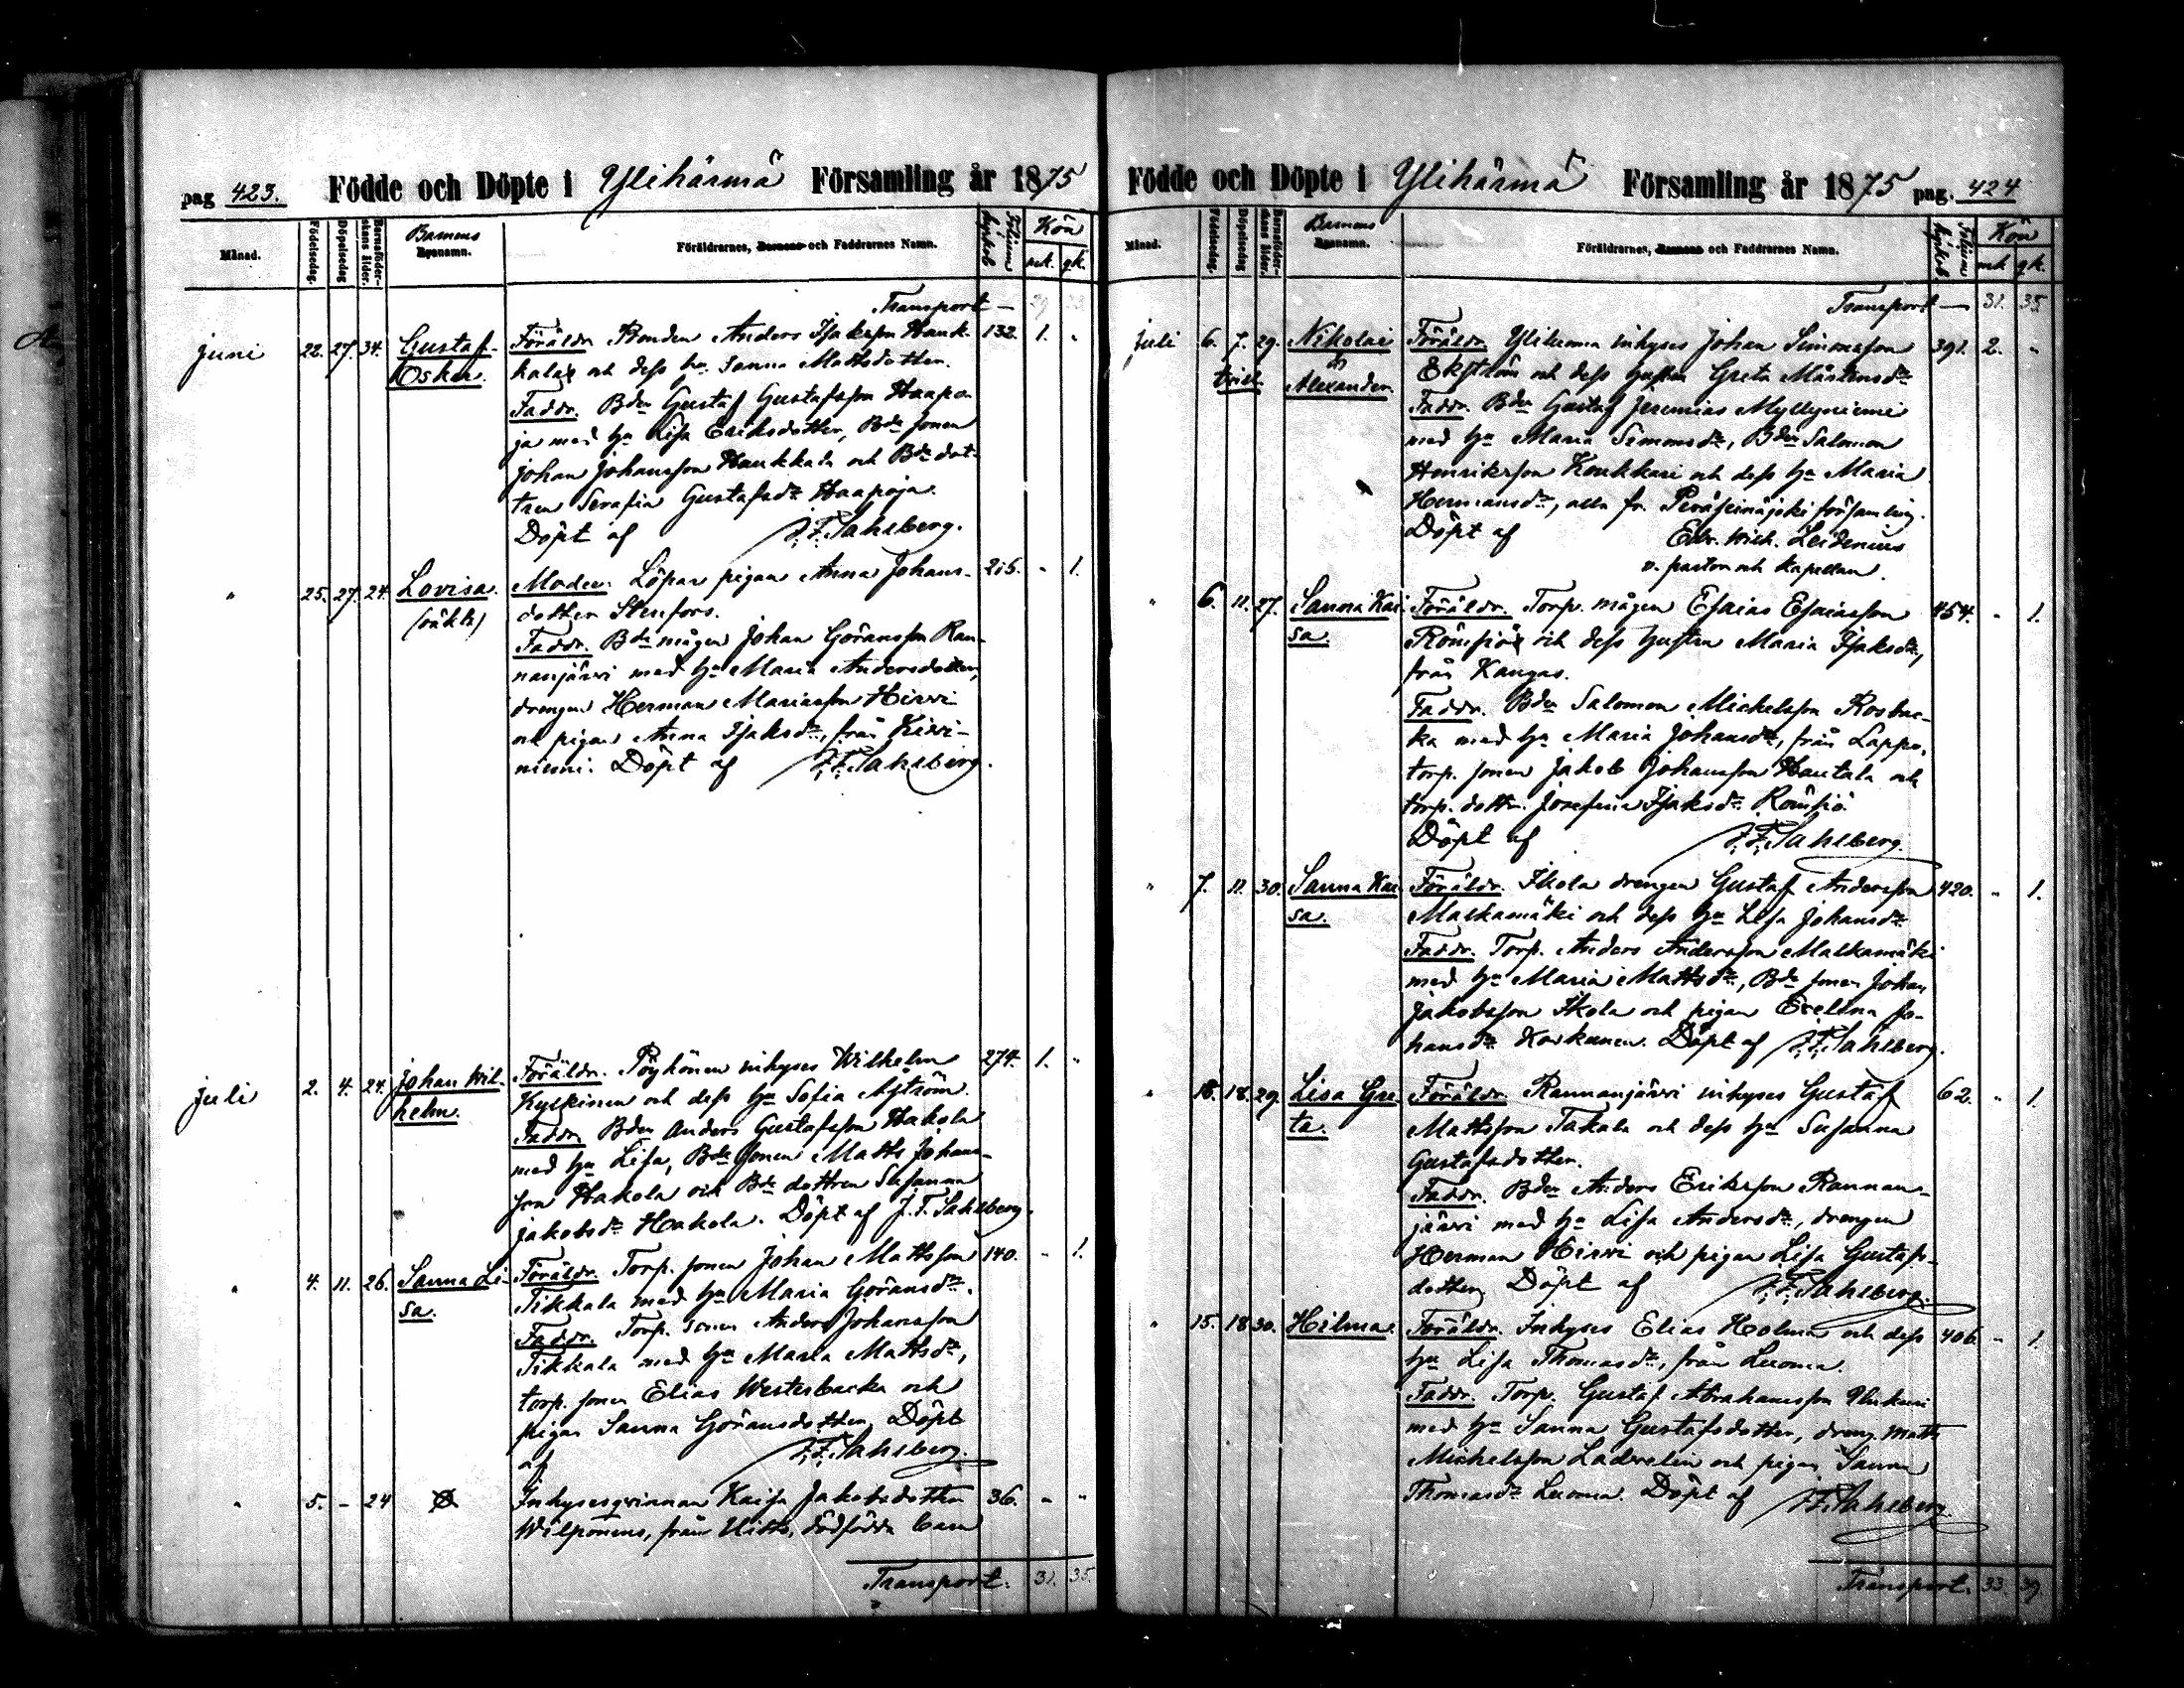 pag 423. Födde och Döpte i Ylihärmä Församling år 1875
Månad. Födelsedag. Döpelsedag Barnaföderskans ålder. Barnens namn. Föräldrarnes, Barnens och Faddrarnes Namn. Folium kyrkob. Kön mk. qk.
Transport — 29 33
juni 22. 27. 34. Gustaf Föräldr. Bonden Anders Isaksson Hauk- 132. 1. "
Oskar. kala och dess hu Sanna Mattsdotter.
Faddr. Bden Gustaf Gustafsson Haapo-
ja med hu Lisa Eriksdotter, Bde sonen
Johan Johansson Haukkala och Bde dot-
tren Serafia Gustafsdr Haapoja.
Döpt af J. F. Sahlberg.
" 25. 27. 24. Lovisa. Moder. Löpar pigan Anna Johans- 215. " 1.
(oäkta) dotter Stenfors.
Faddr. Bde mågen Johan Göransson Ran-
nanjärvi med hu Maria Andersdotter,
drengen Herman Mariasson Hirvi
och pigan Anna Isaksdr, från Kivi-
niemi. Döpt af J. F. Sahlberg.
juli 2. 4. 24. Johan Wil- Föräldr. Pöyhönen inhyses Wilhelm 274. 1. "
helm. Kyskinen och dess hu Sofia Åström.
Faddr. Bden Anders Gustafsson Hakola
med hu Lisa, Bde sonen Matts Johans-
son Hakola och Bde dottren Susanna
Jakobsdr Hakola. Döpt af J. F. Sahlberg.
" 4. 11. 26. Sanna Li- Föräldr. Torp. sonen Johan Mattsson 140. " 1.
sa. Tikkala med hu Maria Göransdr.
Faddr. Torp. sonen Anders Johansson
Tikkala med hu Maria Mattsdr,
torp. sonen Elias Westerbacka och
pigan Sanna Göransdotter. Döpt
af J. F. Sahlberg.
" 5. - 24 Inhysesqvinnan Kaisa Jakobsdotter 36. " "
Wilponens, från dödfödda barn
Transport. 31. 35.
Födde och Döpte i Ylihärmä Församling år 1875 pag. 424
Månad. Födelsedag. Döpelsedag Barnaföderskans ålder. Barnens namn. Föräldrarnes, Barnens och Faddrarnes Namn. Folium kyrkob Kön mk. qk.
Transport — 31. 35.
juli 6. 7. 29. Nikolai Föräldr. Yliluoma inhyses Johan Simonsson 391. 2. "
tvill. o Ekström och dess hustru Greta Mårtensdr
Alexander. Faddr. Bden Gustaf Jeremias Myllyniemi
med hu Maria Simonsdr, Bden Salomon
Henriksson Koukkari och dess hu Maria
Hermansdr, alla fr. Peräseinäjoki församling.
Döpt af Edv. Wilh. Leidenius
v. pastor och kapellan.
" 6. 11. 27. Sanna Kai- Föräldr. Torp. mågen Esaias Esaiasson 454. " 1.
sa. Römsjö och dess hustru Maria Isaksdr,
från Kangas.
Faddr. Bden Salomon Michelsson Rosbac-
ka med hu Maria Johansdr, från Lappo,
torp. sonen Jakob Johansson Hautala och
torp. dottr. Josefina Isaksdr Römsjö.
Döpt af J. F. Sahlberg.
" 7. 11. 30. Sanna Kai- Föräldr. Ikola drengen Gustaf Andersson 420. " 1.
sa. Malkamäki och dess hu Lisa Johansdr
Faddr. Torp. Anders Andersson Malkamäki
med hu Maria Mattsdr, Bde sonen Johan
Jakobsson Ikola och pigan Evelina Jo-
hansdr Korkunen. Döpt af J. F. Sahlberg.
" 18. 18. 29. Lisa Gre- Föräldr. Rannanjärvi inhyses Gustaf 62. " 1.
ta. Mattsson Takala och dess hu Susanna
Gustafsdotter.
Faddr. Bden Anders Eriksson Rannan-
järvi med hu Lisa Andersdr, drengen
Herman Hirvi och pigan Lisa Gustafs-
dotter. Döpt af J. F. Sahlberg.
" 15. 18 30. Hilma. Föräldr. Inhyses Elias Holma och dess 406 " 1.
hu Lisa Thomasdr, från Luoma.
Faddr. Torp. Gustaf Abrahamsson
med hu Sanna Gustafsdotter, dreng. Matts
Michelsson och pigan Sanna
Thomasdr Luoma. Döpt af J. F. Sahlberg.
Transport. 33. 39.